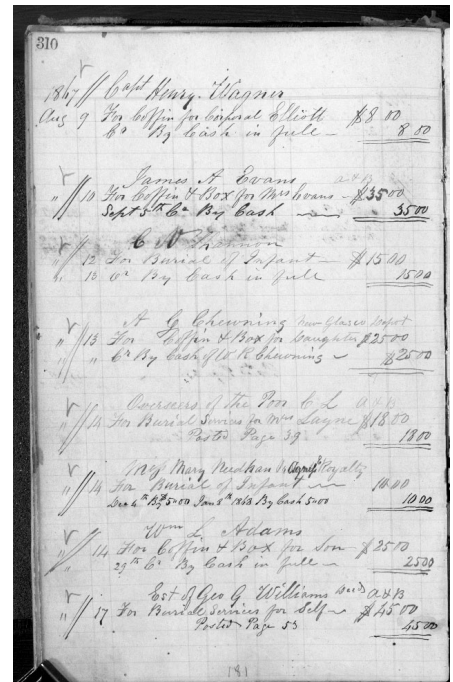 310
1867 // Capt Henry. Wagner
Aug 9 For Coffin for Corporal Elliott $8 00
Cr By Cash in full 8 00
James A Evans a & B
" 10 For Coffin & Box for Mrs Evans $35 00
Sept 5th Cr By Cash 35 00
C
" 12 For Burial of Infant $15 00
" 13 Cr By Cash in full 15 00
A G Chewning near Glazes Depot
" 13 For Coffin & Box for Daughter $25 00
" " Cr By Cash of W R Chewning $25 00
Overseers of the Poor C L a & B
" 13 For Burial Services for Mrs Layne $18 00
Posted Page 39 18 00
Mary Royalty
" 14 For Burial of Infant 10.00
Dec 4th By $5.00 Jan 8th 1868 By Cash 5.00 10 00
Wm L Adams
" 14 For Coffin & Box for Son $25 00
" 29th Cr By Cash in full 25 00
Est of Geo G Williams Decd a & B
" 17 For Burial Services for Self $45 00
Posted Page 53 45 00
181